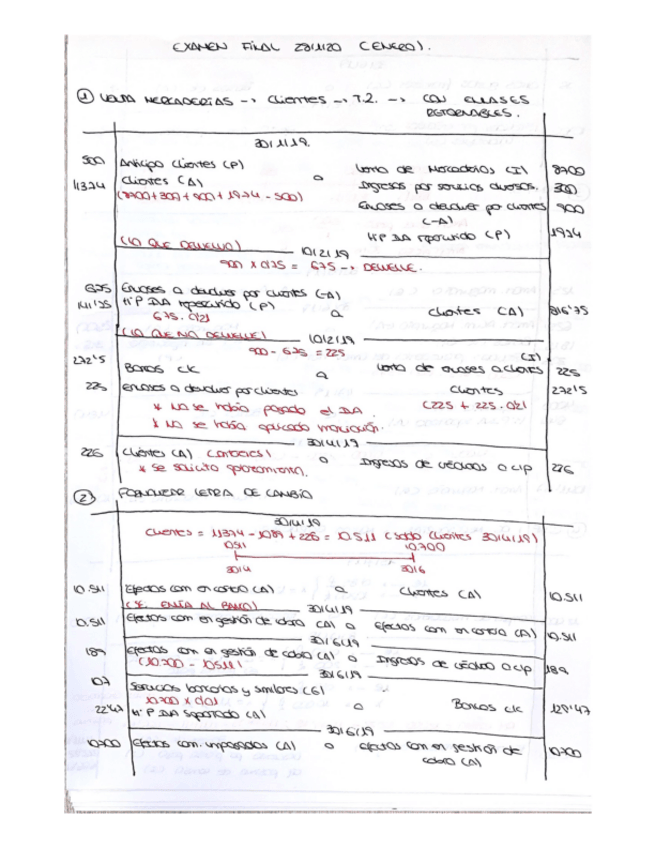 EXAMEN FINAL 23/1/20 (ENERO).
① VENTA MERCADERÍAS → Clientes → T.2. → CON ENVASES
RETORNABLES.
30/1/19.
500 Anticipo Clientes (P) a Venta de Mercaderías (I) 8700
11374 Clientes (A) Ingresos por servicios diversos. 300
(8700+300+900+1974-500) Envases a devolver por clientes 900
(-A)
HP IVA repercutido (P) 1974
(LO QUE DEVUELVO)
10/2/19
900 x 0'75 = 675 → DEVUELVE.
675 Envases a devolver por clientes (-A)
141'75 H.P IVA repercutido (P) a Clientes (A) 816'75
675 · 0'21
(LO QUE NO DEVUELVE)
10/2/19
900 - 675 = 225
(I)
272'5 Bancos c/c a Venta de envases a clientes 225
225 Envases a devolver por clientes Clientes 272'5
* No se había pagado el IVA. (225 + 225 · 0'21
* No se había aplicado
30/4/19
226 Clientes (A) (intereses) a Ingresos de créditos a c/p 226
* se solicita aplazamiento.
② LETRA DE CAMBIO
30/4/19
Clientes = 11374 - 1089 + 226 = 10.511 (saldo clientes 30/4/19)
10.511 10.700
30/4 30/6
10.511 Efectos com en cartera (A) a Clientes (A) 10.511
(SE ENVÍA AL BANCO)
30/4/19
10.511 Efectos com. en gestión de cobro (A) a Efectos com en cartera (A) 10.511
30/6/19
189 Efectos com. en gestión de cobro (A) a Ingresos de créditos a c/p 189
(10.700 - 10511)
30/6/19
107 Servicios bancarios y similares (G)
10.700 x 0'01
22'47 H.P IVA soportado (A) a Bancos c/c 129'47
30/6/19
10700 Efectos com. impagados (A) a efectos com en gestión de 10700
cobro (A)